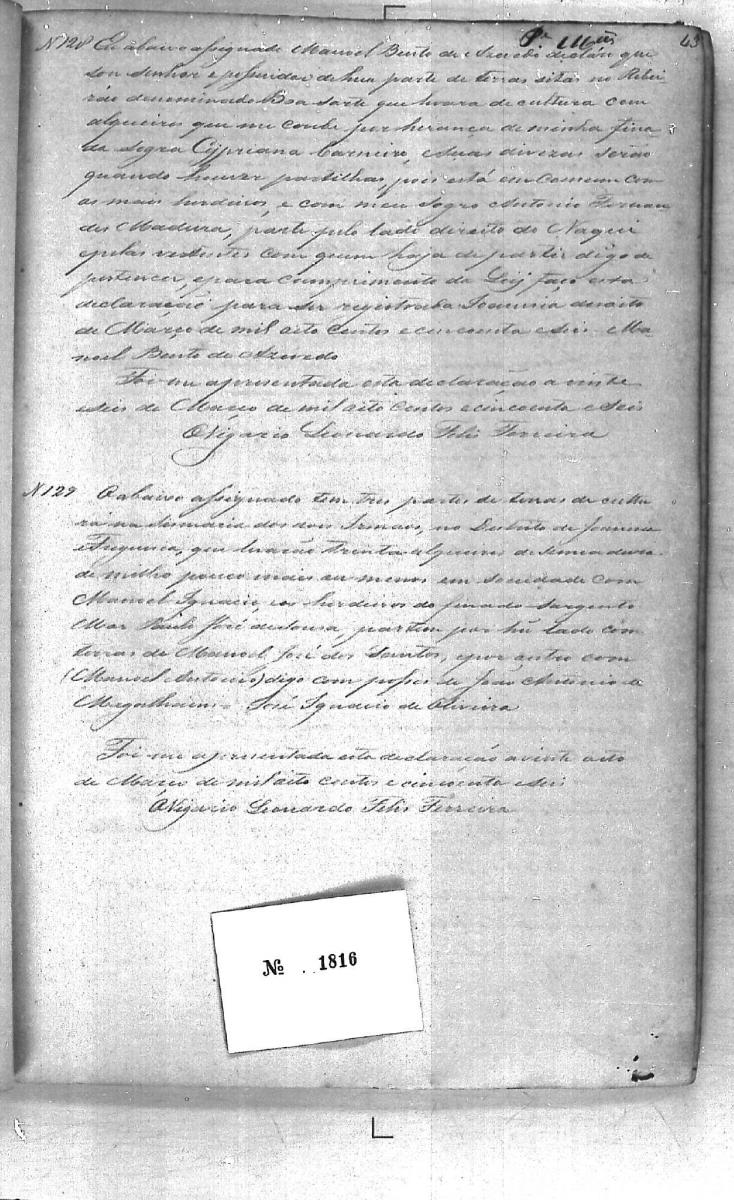 43
N 128 Eu abaixo assignado Manoel Bento de Azevedo declaro que
sou Senhor e possuidor de hua parte de terras sitas no Ribei
rão denominado Boa sorte que levara de cultura com
alqueires que me coube por herança de minha fina
da Sogra Cypriana Carneiro, e suas divizas serão
quando houver partilhas, pois está em Comum com
os mais herdeiros, e com meu Sogro Antonio Fernan
des Madura, parte pelo lado direito do
e pelas vertentes com quem haja de partir digo de
pertencer, e para cumprimento da Ley faço esta
declaração para ser registrada Joanesia desoito
de Março de mil oito centos e cincoenta e seis Ma
noel Bento de Azevedo
Foi me apresentada esta declaração a vinte
e seis de Março de mil oito centos e cincoenta e seis
O Vigario Leonardo Felis Ferreira
N 129 O abaixo assignado tem tres partes de terras de cultu
ra na Sismaria dos dois Irmaos, no Destrito de Joanesia
e Freguesia, que levarão trinta alqueires de semeadura
de milho pouco mais ou menos em sociedade com
Manoel Ignacio, e os herdeiros do finado Sargento
Mor Paulo José de Sousa, partem por hũ lado com
terras de Manoel José dos Santos, e por outro com
(Manoel Antonio) digo com posses de João Antonio de
Magalhaens José Ignacio de Oliveira
Foi me apresentada esta declaração a vinte oito
de Março de mil oito centos e cincoenta e seis
O Vigario Leonardo Felis Ferreira
№ 1816